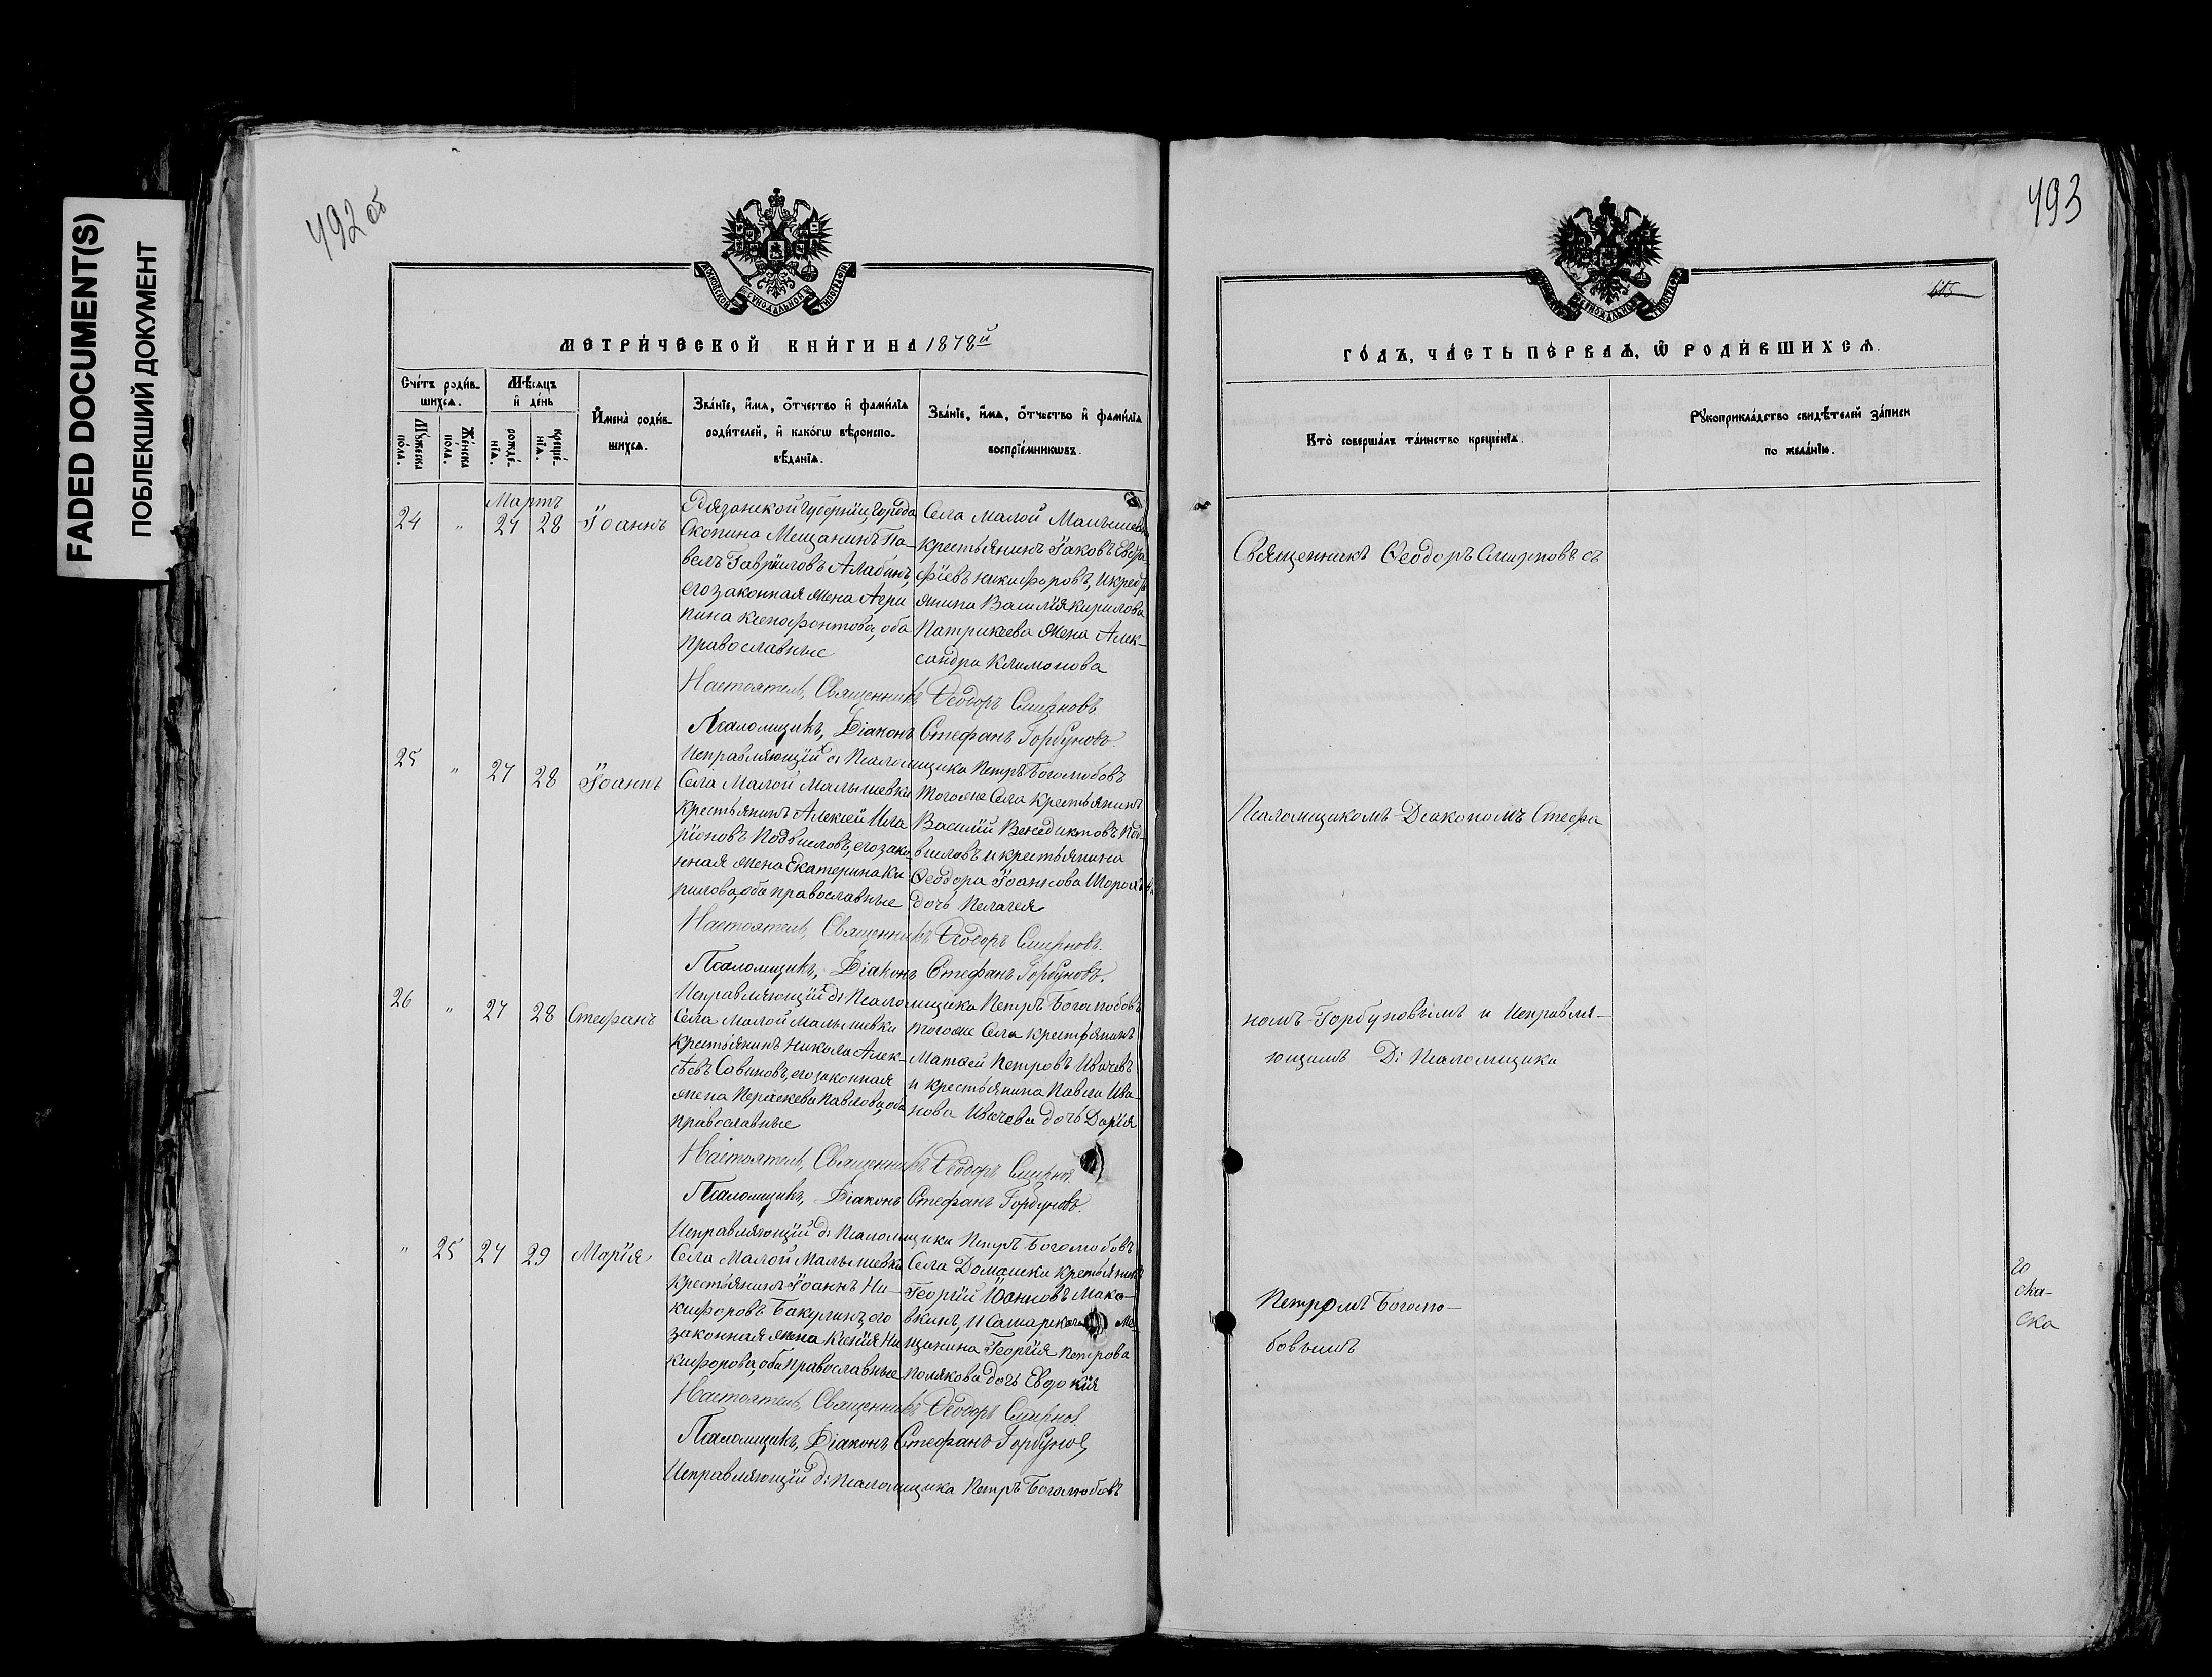 FADED DOCUMENT(S)
ПОБЛЕКШИЙ ДОКУМЕНТ
492 об
МОСКОВСКОЙ СѴНОДАЛЬНОЙ ТИПОГРАФІИ
МЕТРИ́ЧЕСКОЙ КНИ́ГИ НА 1878й
Сче́тъ роди́в-
шихсѧ.
Мѣ́сѧцъ
и҆ де́нь
Мꙋ́жеска
по́ла.
Же́нска
по́ла.
рожде́-
нїѧ.
креще́-
нїѧ.
И҆мена̀ роди́в-
шихсѧ.
Зва́нїе, и҆́мѧ, ѻ҆́тчество и҆ фами́лїѧ
роди́телей, и҆ како́гѡ вѣроиспо-
вѣ́данїѧ.
Зва́нїе, и҆́мѧ, ѻ҆́тчество и҆ фами́лїѧ
воспрїе́мникѡвъ.
Мартъ
24 " 27 28 Іоаннъ
Рязанской Губерніи, Города
Скопина Мещанинъ Па-
велъ Гавріиловъ Алабинъ,
его законная жена Агри
пина Ксенофонтова, оба
православные
Села Малой Малышевки
крестьянинъ Іаковъ Евгра
фіевъ Никифоровъ, и крестъ
янина Василія Кирилова
Патрикеева жена Алек-
сандра Климонова
Настоятель, Священникъ Ѳеодоръ Смирновъ
Псаломщикъ, Діаконъ Стефанъ Горбуновъ.
Исправляющій д: Псаломщика Петръ Боголюбовъ
25 " 27 28 Іоаннъ
Села Малой Малышевки
крестьянинъ Алексей Ила
ріоновъ Подъ
его зако
нная жена Екатерина Ки
рилова, оба православные
Тогоже Села крестьянинъ
Василій Венедиктовъ Под-
и крестьянина
Ѳеодора Іоаннова
дочь Пелагея
Настоятель, Священникъ Ѳеодоръ Смирновъ.
Псаломщикъ, Діаконъ Стефанъ Горбуновъ.
Исправляющій д: Псаломщика Петръ Боголюбовъ
26 " 27 28 Стефанъ
Села Малой Малышевки
крестьянинъ Никола Алек-
сѣевъ Савиновъ, его законная
жена Параскева Павлова, оба
православные
тогоже Села крестьянинъ
Матѳей Петровъ Ивачевъ
и крестьянина Павла Ива-
нова Ивачева дочь Дарія
Настоятель, Священникъ Ѳеодоръ Смирнов
Псаломщикъ, Діаконъ Стефанъ Горбуновъ.
Исправляющій д: Псаломщика Петръ Боголюбовъ
" 25 27 29 Марія
Села Малой Малышевки
Крестьянинъ Іоаннъ Ни-
кифоровъ Бакулинъ, его
законная жена Ксенія Ни
кифорова, оба православные
Села Домашки крестьянинъ
Георгій Іоанновъ Мака-
вкинъ, и Самарскаго Ме-
щанина Георгія Петрова
Полякова дочь Евдокія
Настоятель, Священникъ Ѳеодоръ Смирнов
Псаломщикъ, Діаконъ Стефанъ Горбунов
Исправляющій д: Псаломщика Петръ Боголюбовъ
493
615
СѴНОДАЛЬНОЙ
ГО́ДЪ, ЧА́СТЬ ПЕ́РВАѦ, Ѽ РОДИ́ВШИХСѦ.
Кто̀ соверша́лъ та́инство креще́нїѧ.
Рꙋкоприкла́дство свидѣ́телей за́писи
по жела́нїю.
Священникъ Ѳеодоръ Смирновъ съ
Псаломщикомъ Діакономъ Стефа
номъ Горбуновымъ и Исправля-
ющимъ Д: Псаломщика
Петромъ Боголю-
бовымъ
ска-
ска